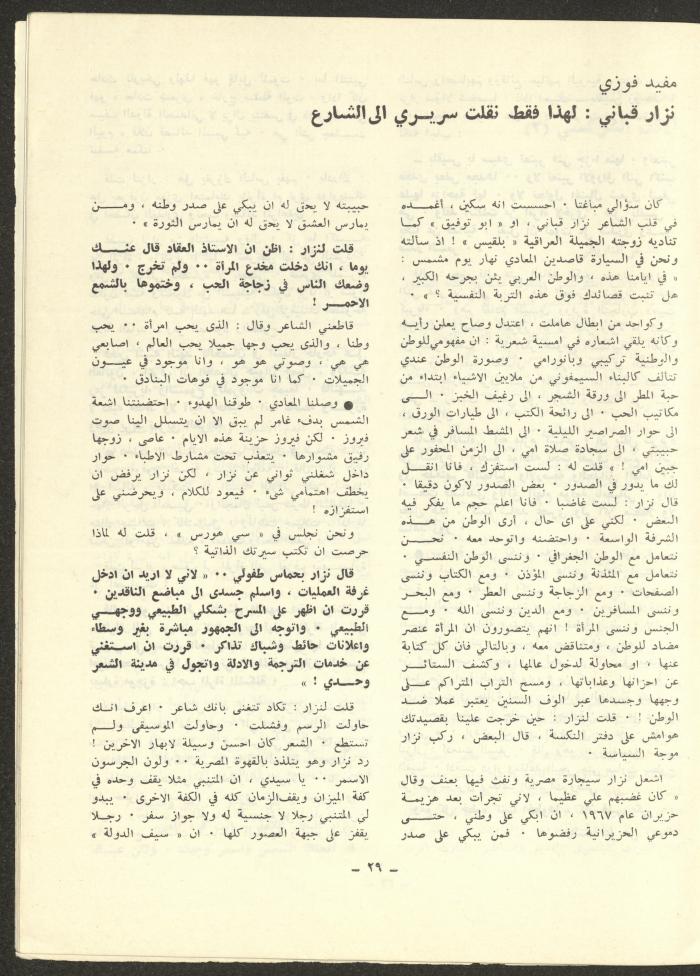 مفيد فوزي
نزار قباني : لهذا فقط نقلت سريري الى الشارع
كان سؤالي مباغتا ٠ احسست انه سكين ، أغمده
في قلب الشاعر نزار قباني ، او « ابو توفيق » كما
تناديه زوجته الجميلة العراقية « بلقيس » ! اذ سألته
ونحن في السيارة قاصدين المعادي نهار يوم مشمس :
« في ايامنا هذه ، والوطن العربي يئن بجرحه الكبير ،
هل تنبت قصائدك فوق هذه التربة النفسية ؟ » ٠
وكواحد من ابطال هاملت ، اعتدل وصاح يعلن رأيه
وكأنه يلقي اشعاره في امسية شعرية : ان مفهومي للوطن
والوطنية تركيبي وبانورامي ٠ وصورة الوطن عندي
تتألف كالبناء السيمفوني من ملايين الاشياء ابتداء من
حبة المطر الى ورقة الشجر ، الى رغيف الخبز ٠ الى
مكاتيب الحب ٠ الى رائحة الكتب ، الى طيارات الورق ،
الى حوار الصراصير الليلية ٠ الى المشط المسافر في شعر
حبيبتي ، الى سجادة صلاة امي ، الى الزمن المحفور على
جبين امي ! » قلت له : لست استفزك ، فانا انقل
لك ما يدور في الصدور ٠ بعض الصدور لاكون دقيقا ٠
قال نزار : لست غاضبا ٠ فانا اعلم حجم ما يفكر فيه
البعض ٠ لكني على اى حال ، أرى الوطن من هذه
الشرفة الواسعة ٠ واحتضنه واتوحد معه ٠ نحن
نتعامل مع الوطن الجغرافي ٠ وننسى الوطن النفسي ٠
نتعامل مع المئذنة وننسى المؤذن ٠ ومع الكتاب وننسى
الصفحات ٠ ومع الزجاجة وننسى العطر ٠ ومع البحر
وننسى المسافرين ٠ ومع الدين وننسى الله ٠ ومع
الجنس وننسى المرأة ! انهم يتصورون ان المرأة عنصر
مضاد للوطن ، ومتناقض معه ، وبالتالي فان كل كتابة
عنها ، او محاولة لدخول عالمها ، وكشف الستائر
عن احزانها وعذاباتها ، ومسح التراب المتراكم على
وجهها وجسدها عبر الوف السنين يعتبر عملا ضد
الوطن ! ٠ قلت لنزار : حين خرجت علينا بقصيدتك
هوامش على دفتر النكسة ، قال البعض ، ركب نزار
موجة السياسة ٠
اشعل نزار سيجارة مصرية ونفث فيها بعنف وقال
« كان غضبهم علي عظيما ، لاني تجرأت بعد هزيمة
حزيران عام ١٩٦٧ ، ان ابكي على وطني ، حتى
دموعي الحزيرانية رفضوها ٠ فمن يبكي على صدر
حبيبته لا يحق له ان يبكي على صدر وطنه ، ومن
يمارس العشق لا يحق له ان يمارس الثورة » ٠
قلت لنزار : اظن ان الاستاذ العقاد قال عنك
يوما ، انك دخلت مخدع المرأة ٠٠ ولم تخرج ٠ ولهذا
وضعك الناس في زجاجة الحب ، وختموها بالشمع
الاحمر !
قاطعني الشاعر وقال : الذى يحب امرأة ٠٠ يحب
وطنا ، والذى يحب وجها جميلا يحب العالم ، اصابعي
هي هي ، وصوتي هو هو ، وانا موجود في عيون
الجميلات ٠ كما انا موجود في فوهات البنادق ٠
● وصلنا المعادي ٠ طوقنا الهدوء ٠ احتضنتنا اشعة
الشمس بدفء غامر لم يبق الا ان يتسلل الينا صوت
فيروز ٠ لكن فيروز حزينة هذه الايام ٠ عاصى ، زوجها
رفيق مشوارها ٠ يتعذب تحت مشارط الاطباء ٠ حوار
داخل شغلني ثواني عن نزار ، لكن نزار يرفض ان
يخطف اهتمامي شىء ٠ فيعود للكلام ، ويحرضني على
استفزازه !
ونحن نجلس في « سي هورس » ، قلت له لماذا
حرصت ان تكتب سيرتك الذاتية ؟
قال نزار بحماس طفولي ٠٠ « لاني لا اريد ان ادخل
غرفة العمليات ، واسلم جسدى الى مباضع الناقدين ٠
قررت ان اظهر على المسرح بشكلي الطبيعي ووجهي
الطبيعي ٠ واتوجه الى الجمهور مباشرة بغير وسطاء
واعلانات حائط وشباك تذاكر ٠ قررت ان استغني
عن خدمات الترجمة والادلة واتجول في مدينة الشعر
وحدي ! »
قلت لنزار : تكاد تتغنى بأنك شاعر ٠ اعرف انك
حاولت الرسم وفشلت ٠ وحاولت الموسيقى ولم
تستطع ٠ الشعر كان احسن وسيلة لابهار الاخرين !
رد نزار وهو يتلذذ بالقهوة المصرية ٠٠ ولون الجرسون
الاسمر ٠٠ يا سيدي ، ان المتنبي مثلا يقف وحده في
كفة الميزان ويقف الزمان كله في الكفة الاخرى ٠ يبدو
لي المتنبي رجلا لا جنسية له ولا جواز سفر ٠ رجلا
يقفز على جبهة العصور كلها ٠ ان « سيف الدولة »
– ٢٩ –